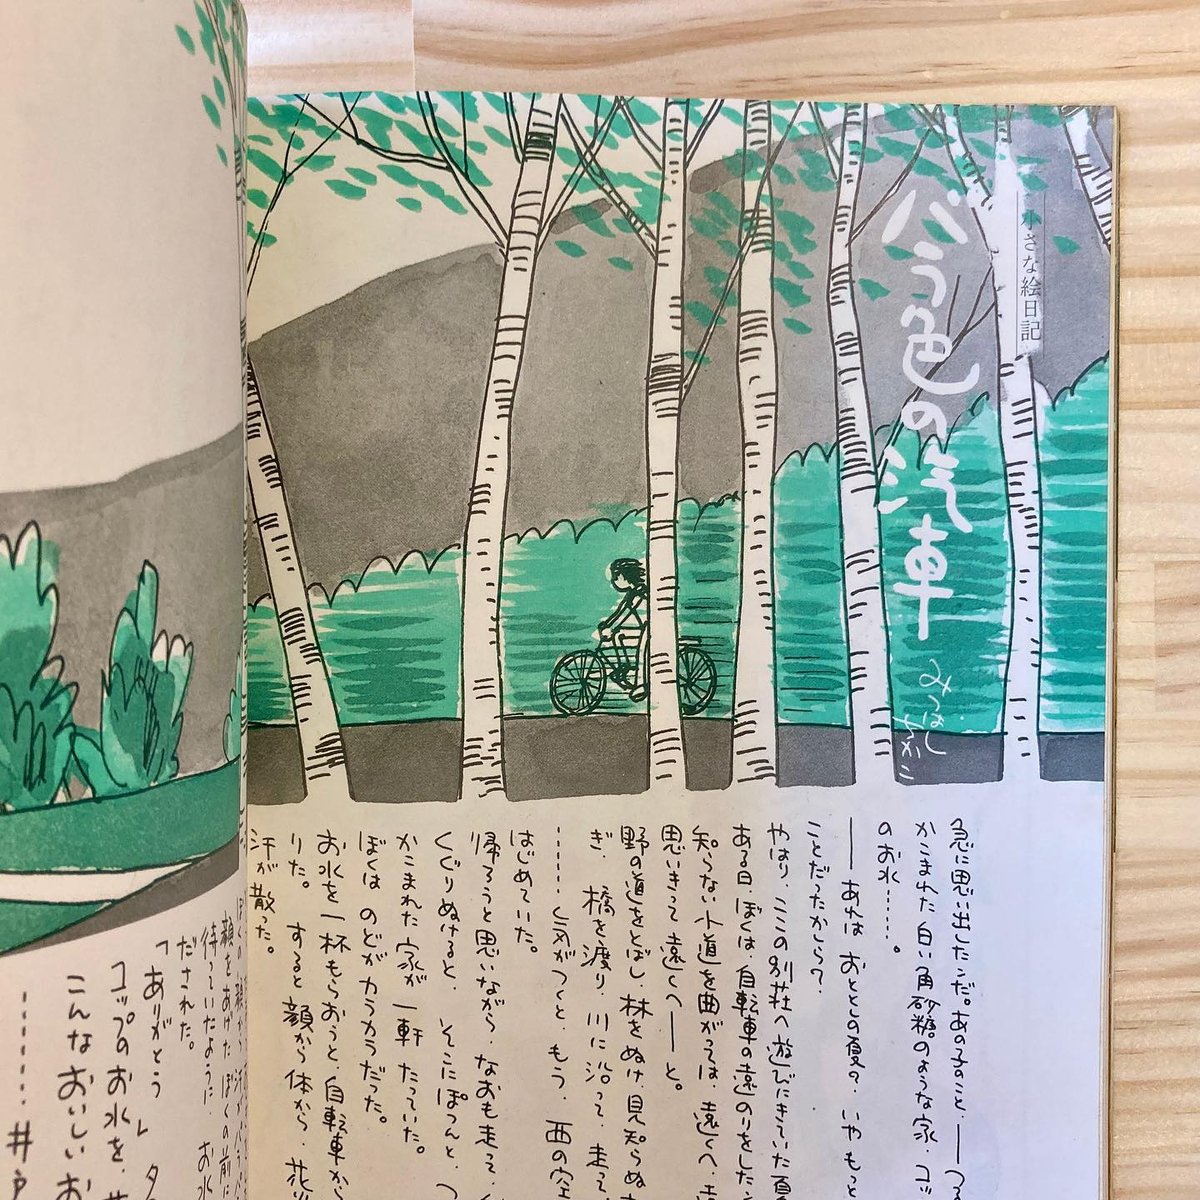 小さな絵日記
バラ色の汽車
みつはしちかこ
急に思い出したンだ。あの子のこと、――つる
かこまれた 白い角砂糖のような家、コッ
のお水……。
――あれは おととしの夏の、いやもっと
ことだったかしら?
やはり、ここの別荘へ遊びにきていた夏
ある日、ぼくは、自転車の遠のりをしたン
知らない小道を曲がっては、遠くへ、
思いきって遠くへ――と。
野の道をとばし、林をぬけ、見知らぬ
ぎ、橋を渡り、川に沿って、走って、
……気がつくと、もう、西の空
はじめていた。
帰ろうと思いながら、なおも走って、
くぐりぬけると、そこにぽつんと、つ
かこまれた 家が 一軒 たっていた。
ぼくは のどがカラカラだった。
お水を一杯もらおうと、自転車から
りた。 すると 顔から体から、花
汗が散った。
顔をあげた ぼくの前に
待っていたように、お水
だされた。
「ありがとう」
コップのお水を、
こんなおいしいお
………井戸